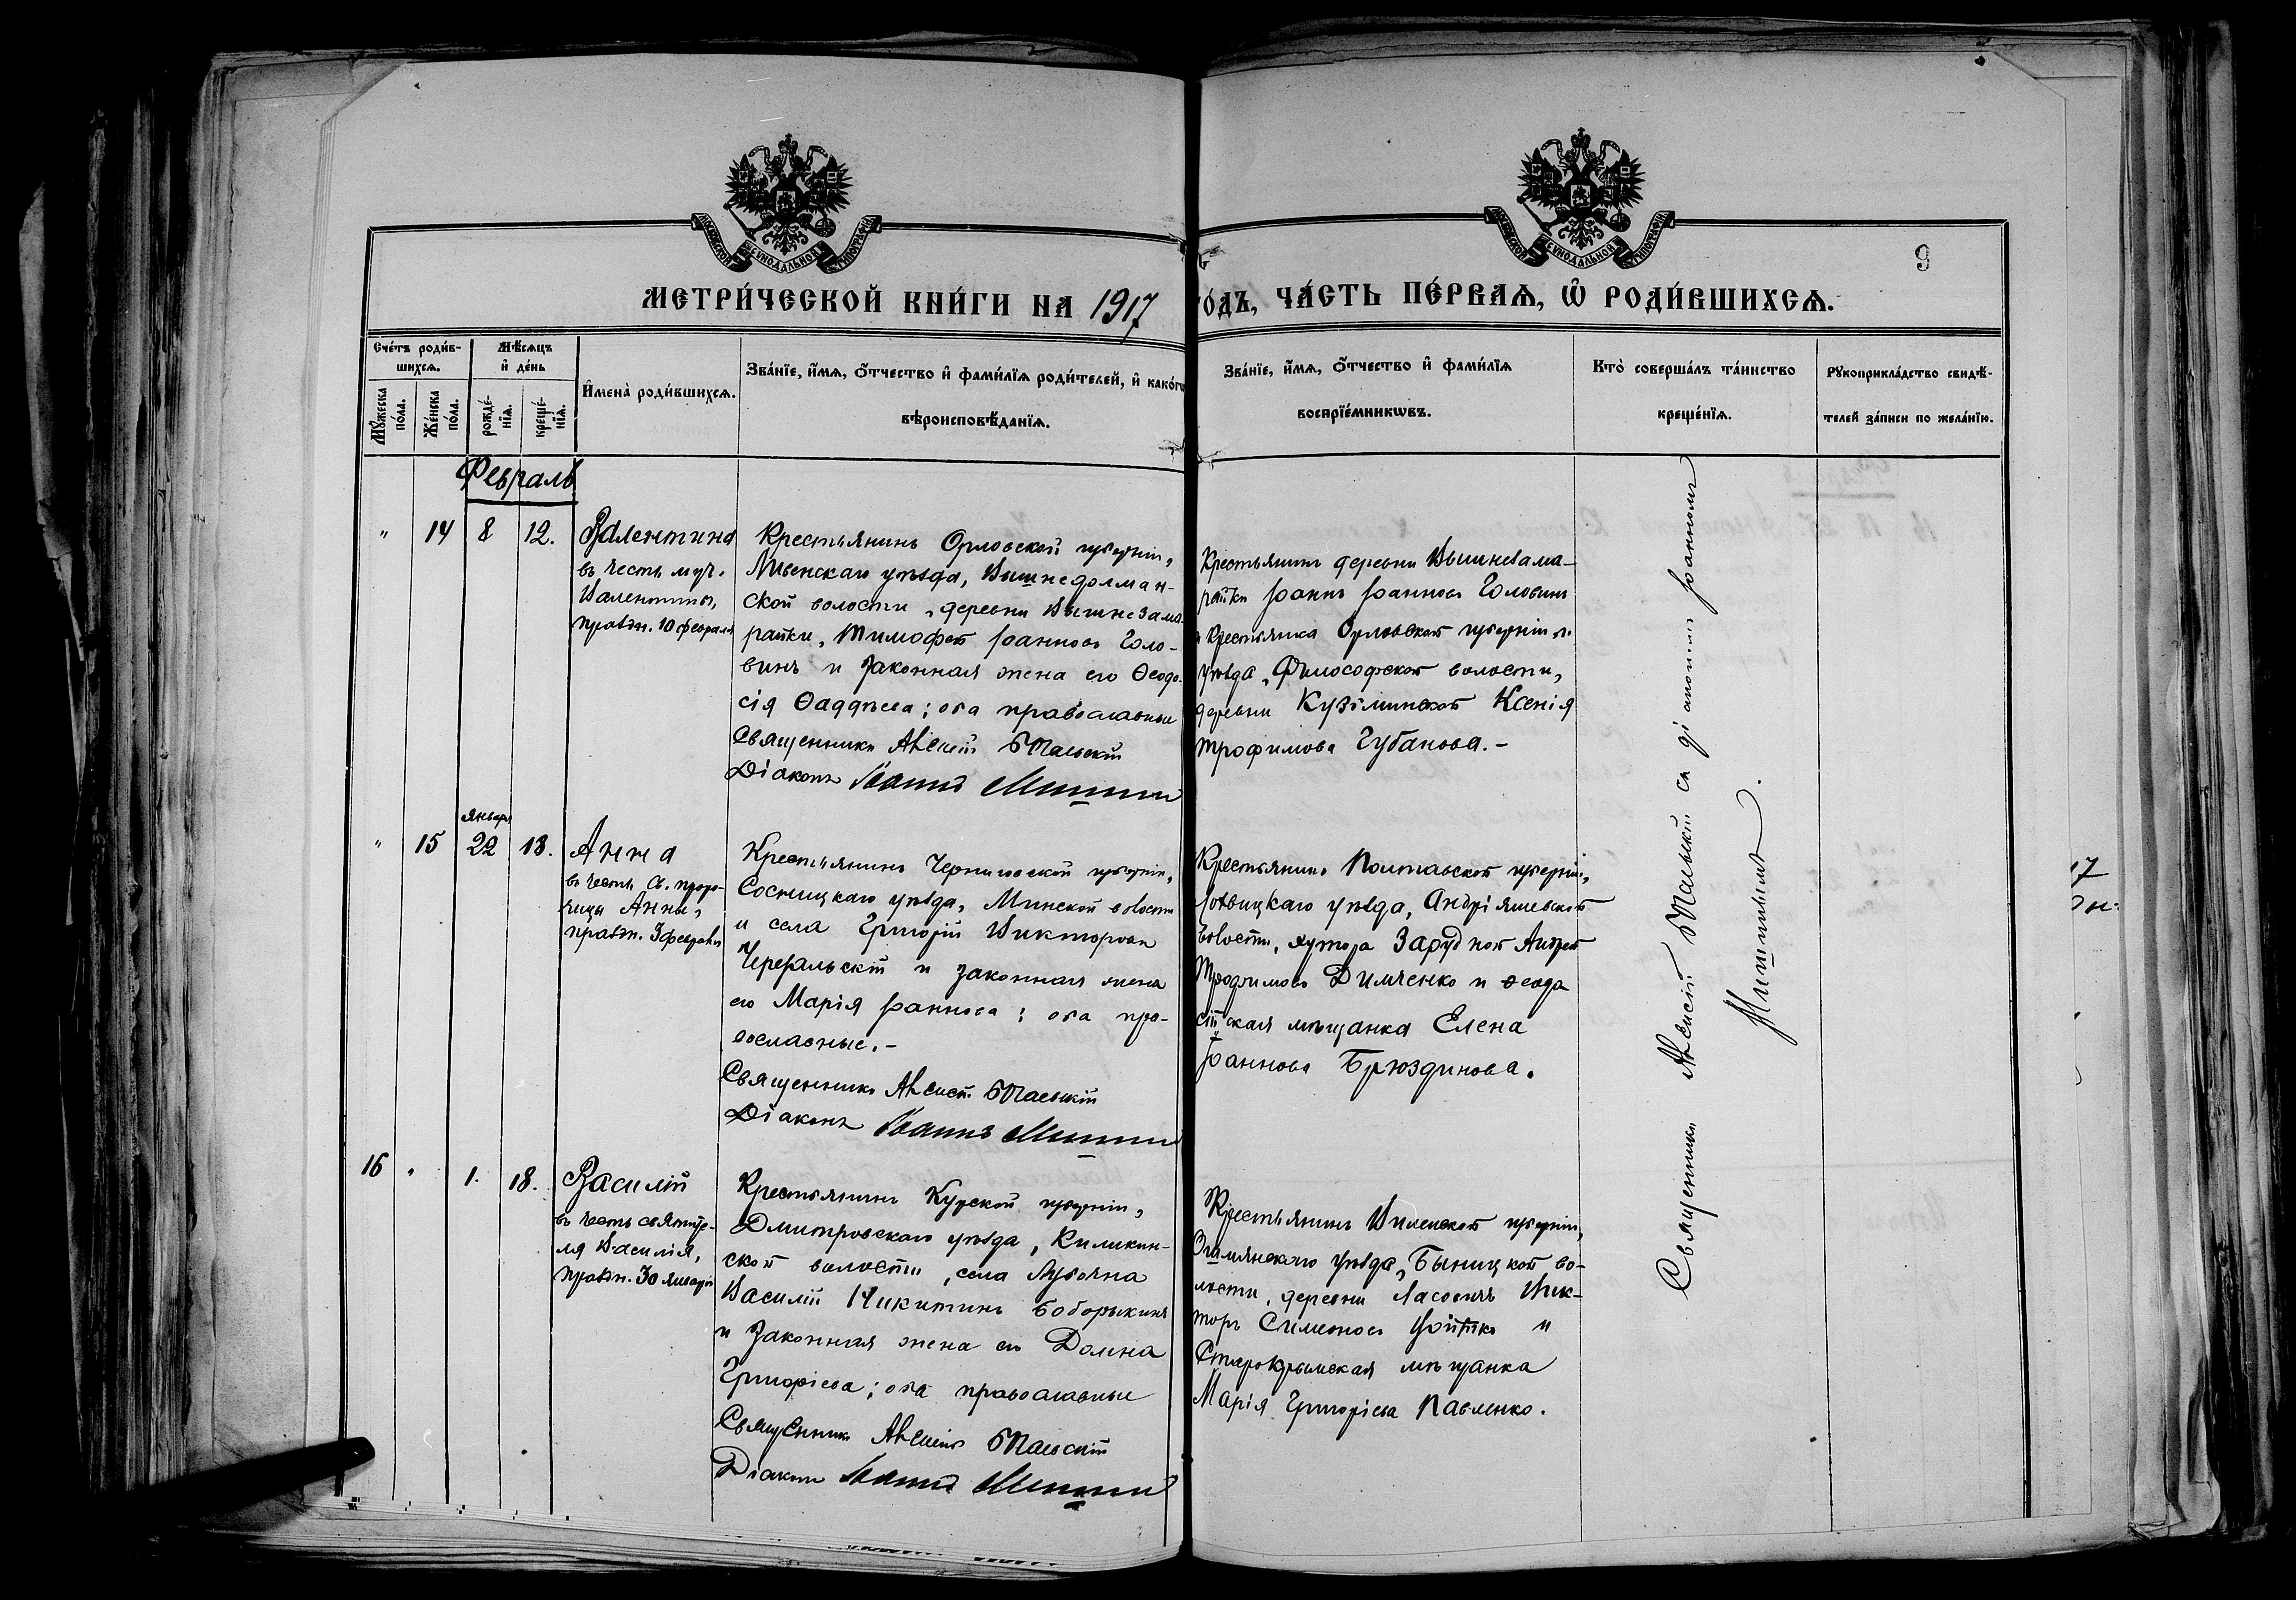 МОСКОВСКОЙ СѴНОДАЛЬНОЙ ТИПОГРАФІИ
МОСКОВСКОЙ СѴНОДАЛЬНОЙ ТИПОГРАФІИ
9
МЕТРИ́ЧЕСКОЙ КНИ́ГИ НА 1917 го́дъ, ЧА́СТЬ ПЕ́РВАѦ, Ѡ҆ РОДИ́ВШИХСѦ.
Сче́тъ роди́в-
шихсѧ.
Мꙋ́жеска по́ла.
Же́нска по́ла.
Мѣ́сѧцъ
и҆ де́нь
рожде́-
нїѧ.
креще́-
нїѧ.
И҆мена̀ роди́вшихсѧ.
Зва́нїе, и҆́мѧ, ѻ҆́тчество и҆ фами́лїѧ роди́телей, и҆ како́гѡ
вѣроисповѣ́данїѧ.
Зва́нїе, и҆́мѧ, ѻ҆́тчество и҆ фами́лїѧ
воспрїе́мникѡвъ.
Кто̀ соверша́лъ та́инство
креще́нїѧ.
Рꙋкоприкла́дство свидѣ́-
телей за́писи по жела́нїю.
Февраль
" 14 8 12.
Валентина
въ честь муч.
Валентины,
праздн. 10 февраля
Крестьянинъ Орловской губерніи,
Ливенскаго уѣзда, Вышнедолман-
ской волости, деревни Вышнезама-
райки, Тимофей Іоанновъ Голо-
винъ и законная жена его Ѳеодо-
сія Ѳаддѣева; оба православные
Священникъ Алексій
Діаконъ Іоаннъ
Крестьянинъ деревни Вышнезама-
райки Іоаннъ Іоанновъ Головинъ
и крестьянка Орловской губерніи и
уѣзда, Философской волости,
деревни Кузьминской Ксенія
Трофимова Губанова. -
" 15 января 22 13.
Анна
въ честь св. проро-
чицы Анны,
праздн. 3 февраля
Крестьянинъ Черниговской губерніи,
Сосницкаго уѣзда, Минской волости
и села Григорій Викторовъ
и законная жена
его Марія Іоаннова; оба пра-
вославные. -
Священникъ Алексій
Діаконъ Іоаннъ
Крестьянинъ Полтавской губерніи,
Лохвицкаго уѣзда, Андріяшевской
волости, хутора Заруднон Андрей
Трофимовъ Димченко и Ѳеодо
сійская мѣщанка Елена
Іоаннова Брюздинова.
16 " 1. 18.
Василій
въ честь святите-
ля Василія,
праздн. 30 января
Крестьянинъ Курской губерніи,
Дмитровскаго уѣзда, Киликин-
ской волости, села
Василій Никитинъ Боборыкинъ
и законная жена его Домна
Григорьева; оба православные
Священникъ Алексій
Діаконъ Іоаннъ
Крестьянинъ Виленской губерніи,
Ошмянскаго уѣзда, Быницкой во-
лости, деревни Ласовичъ Вик-
торъ Симеоновъ Войтко и
Старокрымская мѣщанка
Марія Григорьева Павленко.
Священникъ Алексій съ діакономъ Іоанномъ